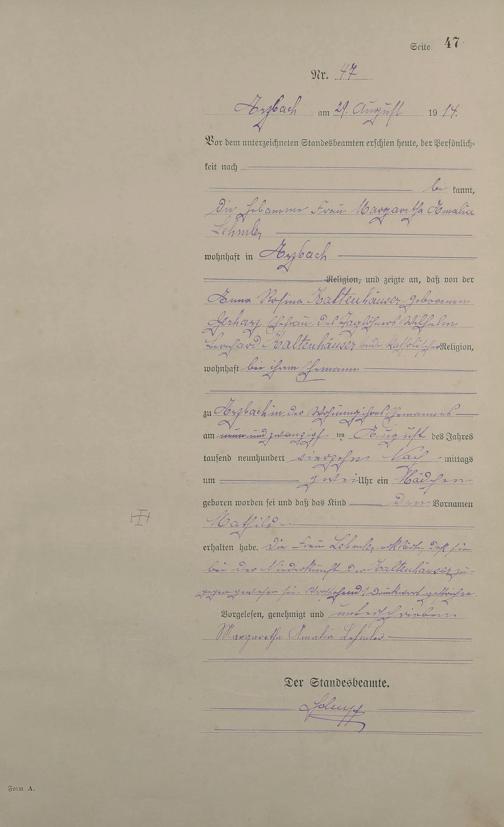 Seite 47
Nr. 47
Arzbach am 21. August 1914.
Vor dem unterzeichneten Standesbeamten erschien heute, der Persönlich-
keit nach
be kannt,
die Hebamme Frau Margaretha Amalie
Lehmler
wohnhaft in Arzbach
Religion, und zeigte an, daß von der
Anna Rosina Kaltenhäuser geborenen
Gerharz Ehefrau des Taglöhners Wilhelm
Bernhard Kaltenhäuser beide katholischer Religion,
wohnhaft bei ihrem Ehemann
zu Arzbach in der Wohnung ihres Ehemannes
am einundzwanzigsten August des Jahres
tausend neunhundert vierzehn Nach mittags
um zwei Uhr ein Mädchen
geboren worden sei und daß das Kind den Vornamen
Mathilde
erhalten habe. Die Frau Lehmler erklärte, daß sie
bei der Niederkunft der Kaltenhäuser zu-
gegen gewesen sei. Vorstehend Druckwort gestrichen
Vorgelesen, genehmigt und unterschrieben
Margaretha Amalia Lehmler
Der Standesbeamte.
Form A.